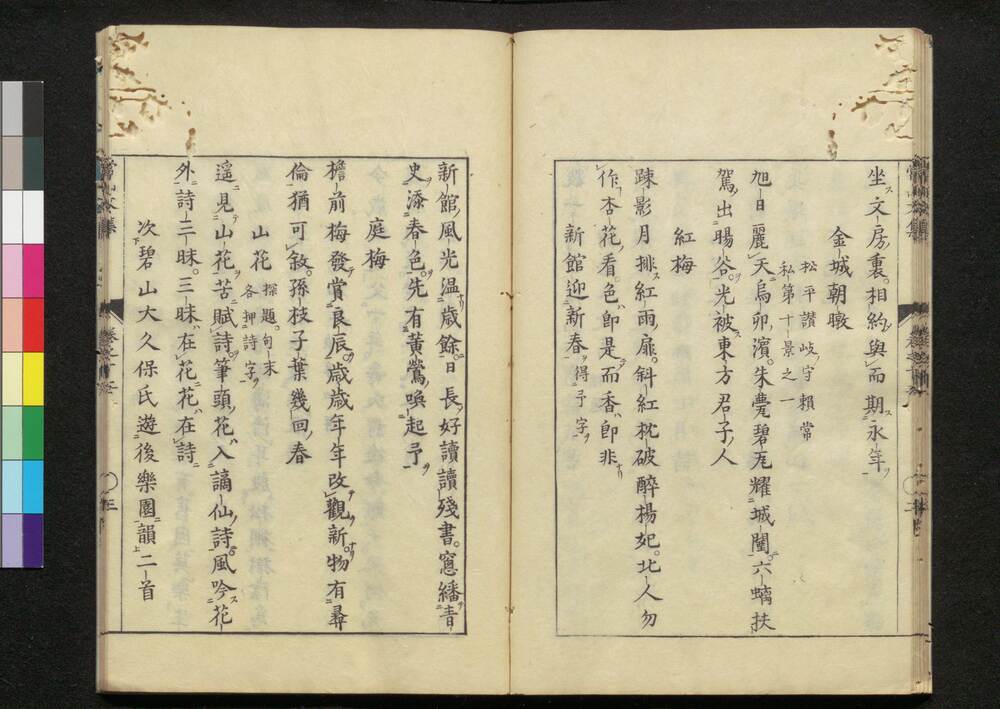 坐文房裏。相約與而期永年
金城朝暾 松平讃岐守頼常
私第十景之一
旭日麗天烏卯濱。朱甍碧瓦耀城闉。六螭扶
駕出暘谷。光被東方君子人
紅梅
踈影月排紅雨扉。斜紅枕破醉楊妃。北人勿
作杏花看。色即是而香即非
新館迎新春得予字
新館風光温歳餘。日長好讀讀殘書。窓繙青
史添春色。先有黄鶯喚起予
庭梅
檐前梅發賞良辰。歳歳年年改觀新。物有尋
倫猶可敘。孫枝子葉幾回春
山花 探題。句末
各押詩字
遥見山花苦賦詩。筆頭花入謫仙詩。風吟花
外詩三昧。三昧在花花在詩
次碧山大久保氏遊後樂園韻二首
常山文集
卷之十